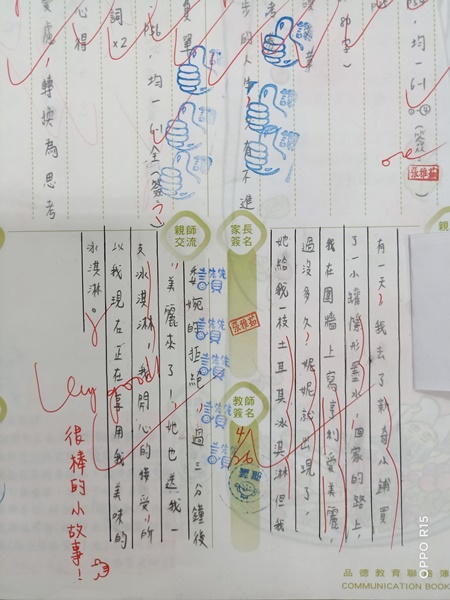 匀一6-1
(簽)
張雅茹
80字)
考
步的人生,有不進
讚
讚
讚
讚
單
匀一6-1全(簽)
詞x2
心得
處,轉換為思考
親師交流
家長簽名
張雅茹
教師簽名
4/26
有一天,我去了新奇小鋪買
了一小罐隱形墨水,回家的路上,
我在圍牆上寫亨利愛美麗,
過沒多久,妮妮就出現了,
她給我一枝土耳其冰淇淋但我
委婉的拒絕,過三分鐘後
,美麗來了!她也送我一
支冰淇淋,我開心的接受,所
以我現在正在享用我美味的
冰淇淋。
讚讚讚讚讚
Very good!
很棒的小故事!
品德教育聯絡簿
COMMUNICATION BOOK
OPPO R15